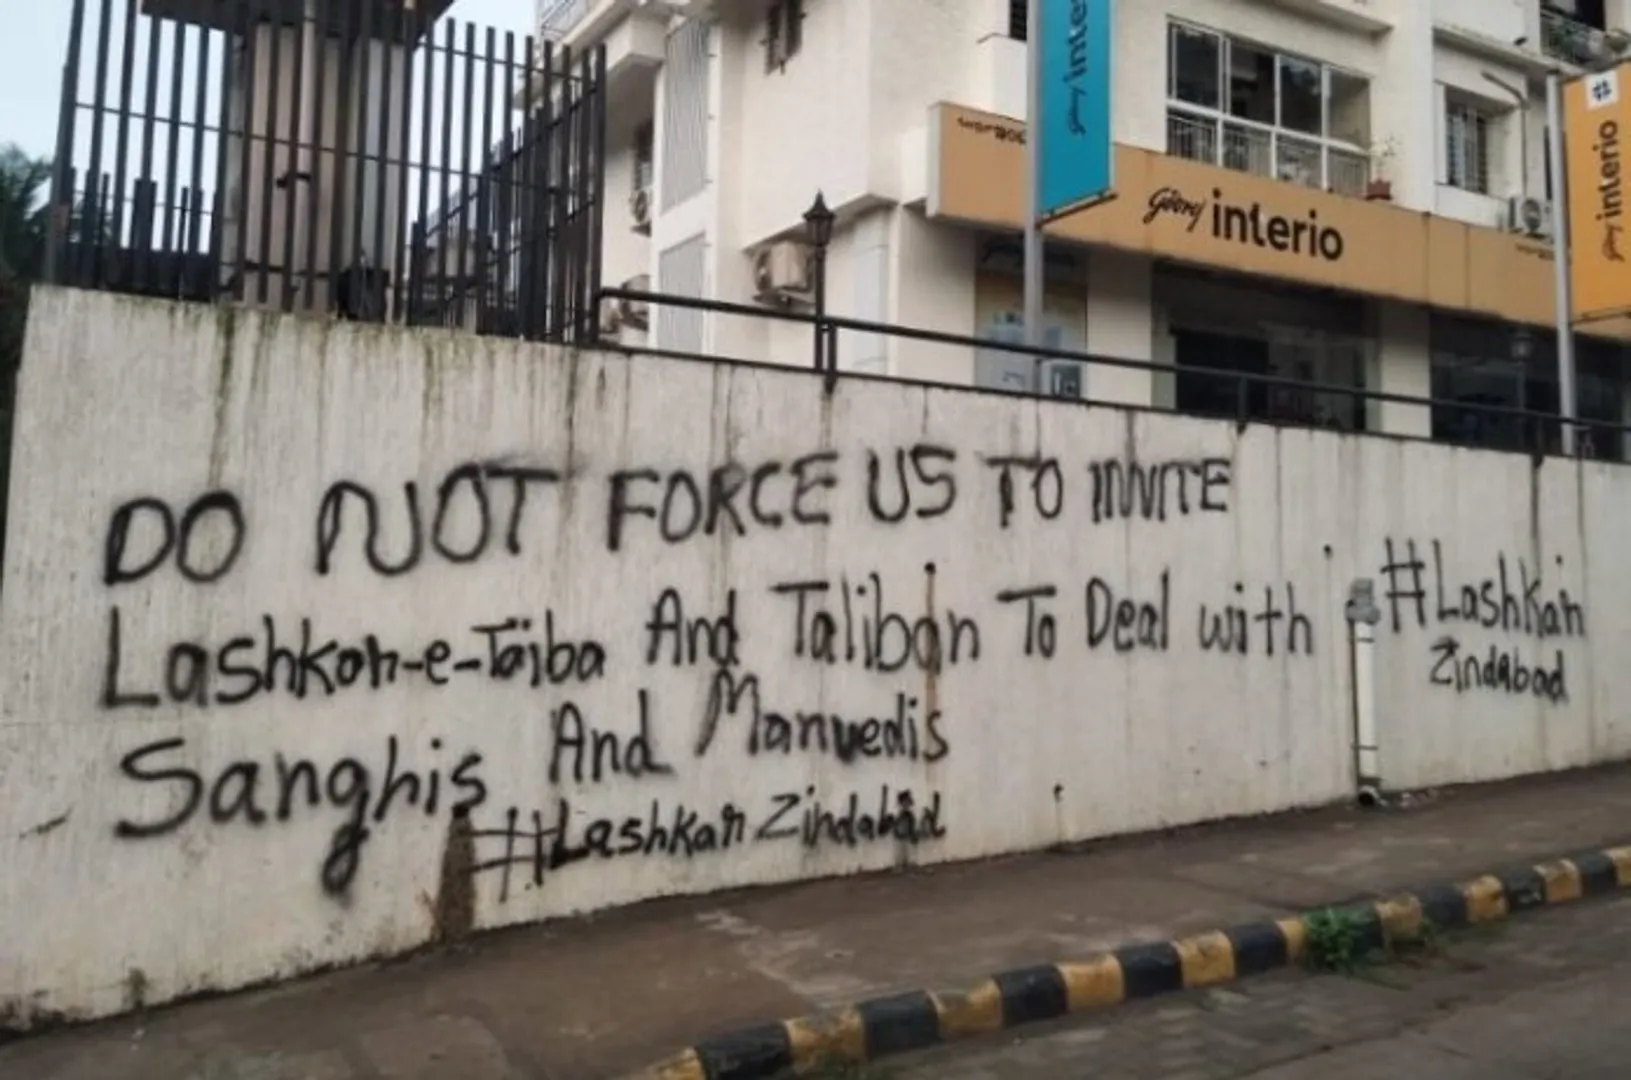 inte
Godrej interio
interio
DO NOT FORCE US TO INVITE
Lashkah-e-Taiba And Taliban To Deal with
Sanghis And Manvedis
#Lashkah Zindabad
#Lashkah
Zindabad